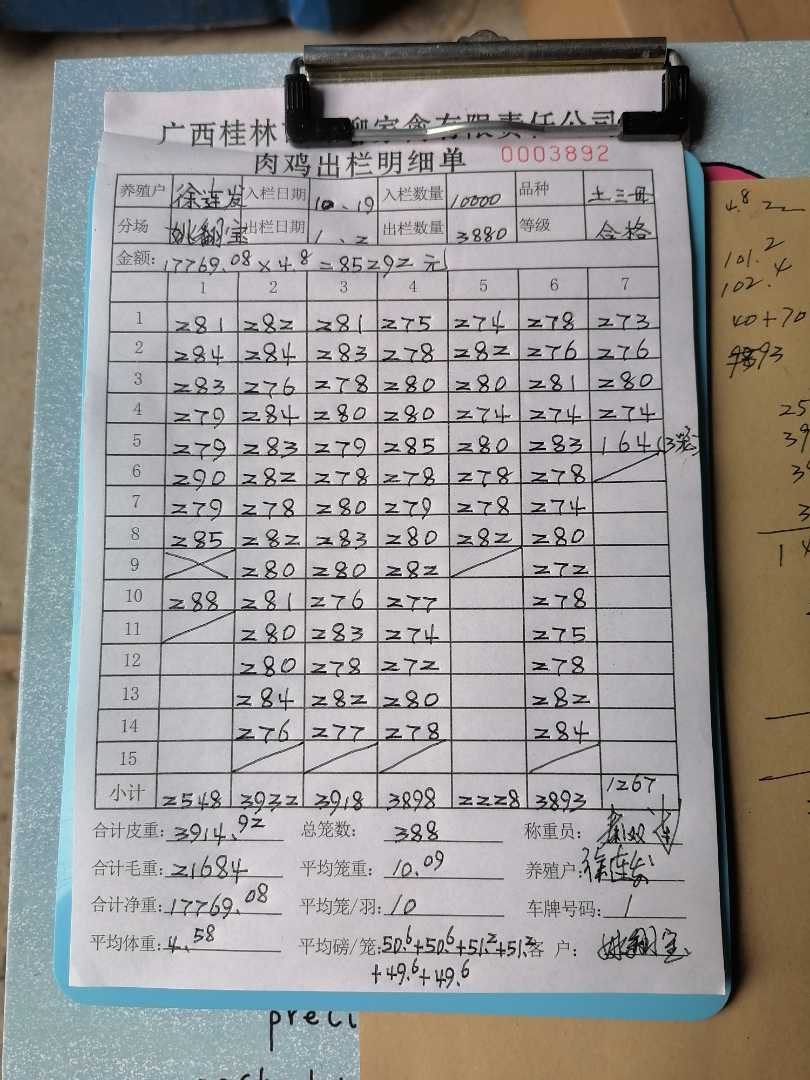 广西桂林 家禽有限责任公司
肉鸡出栏明细单 0003892
养殖户 徐连发 入栏日期 10.19 入栏数量 10000 品种 土三
分场 姚翻宝 出栏日期 1.2 出栏数量 3880 等级 合格
金额: 17769.08×4.8=85292元
1 2 3 4 5 6 7
1 281 282 281 275 274 278 273
2 284 284 283 278 282 276 276
3 283 276 278 280 280 281 280
4 279 284 280 280 274 274 274
5 279 283 279 285 280 283 164(3笼)
6 290 282 278 278 278 278
7 279 278 280 279 278 274
8 285 282 283 280 282 280
9 280 280 282 272
10 288 281 276 277 278
11 280 283 274 275
12 280 278 272 278
13 284 282 280 282
14 276 277 278 284
15
小计 2548 3932 3918 3898 2228 3893 1267
合计皮重: 3914.92 总笼数: 388 称重员:
合计毛重: 21684 平均笼重: 10.09 养殖户: 徐连发
合计净重: 17769.08 平均笼/羽: 10 车牌号码: 1
平均体重: 4.58 平均磅/笼: 50.6+50.6+51.2+51.2 客户: 姚翻宝
+49.6+49.6
4.8
101.2
102.4
40+70
93
25
39
3
3
1 4
preci